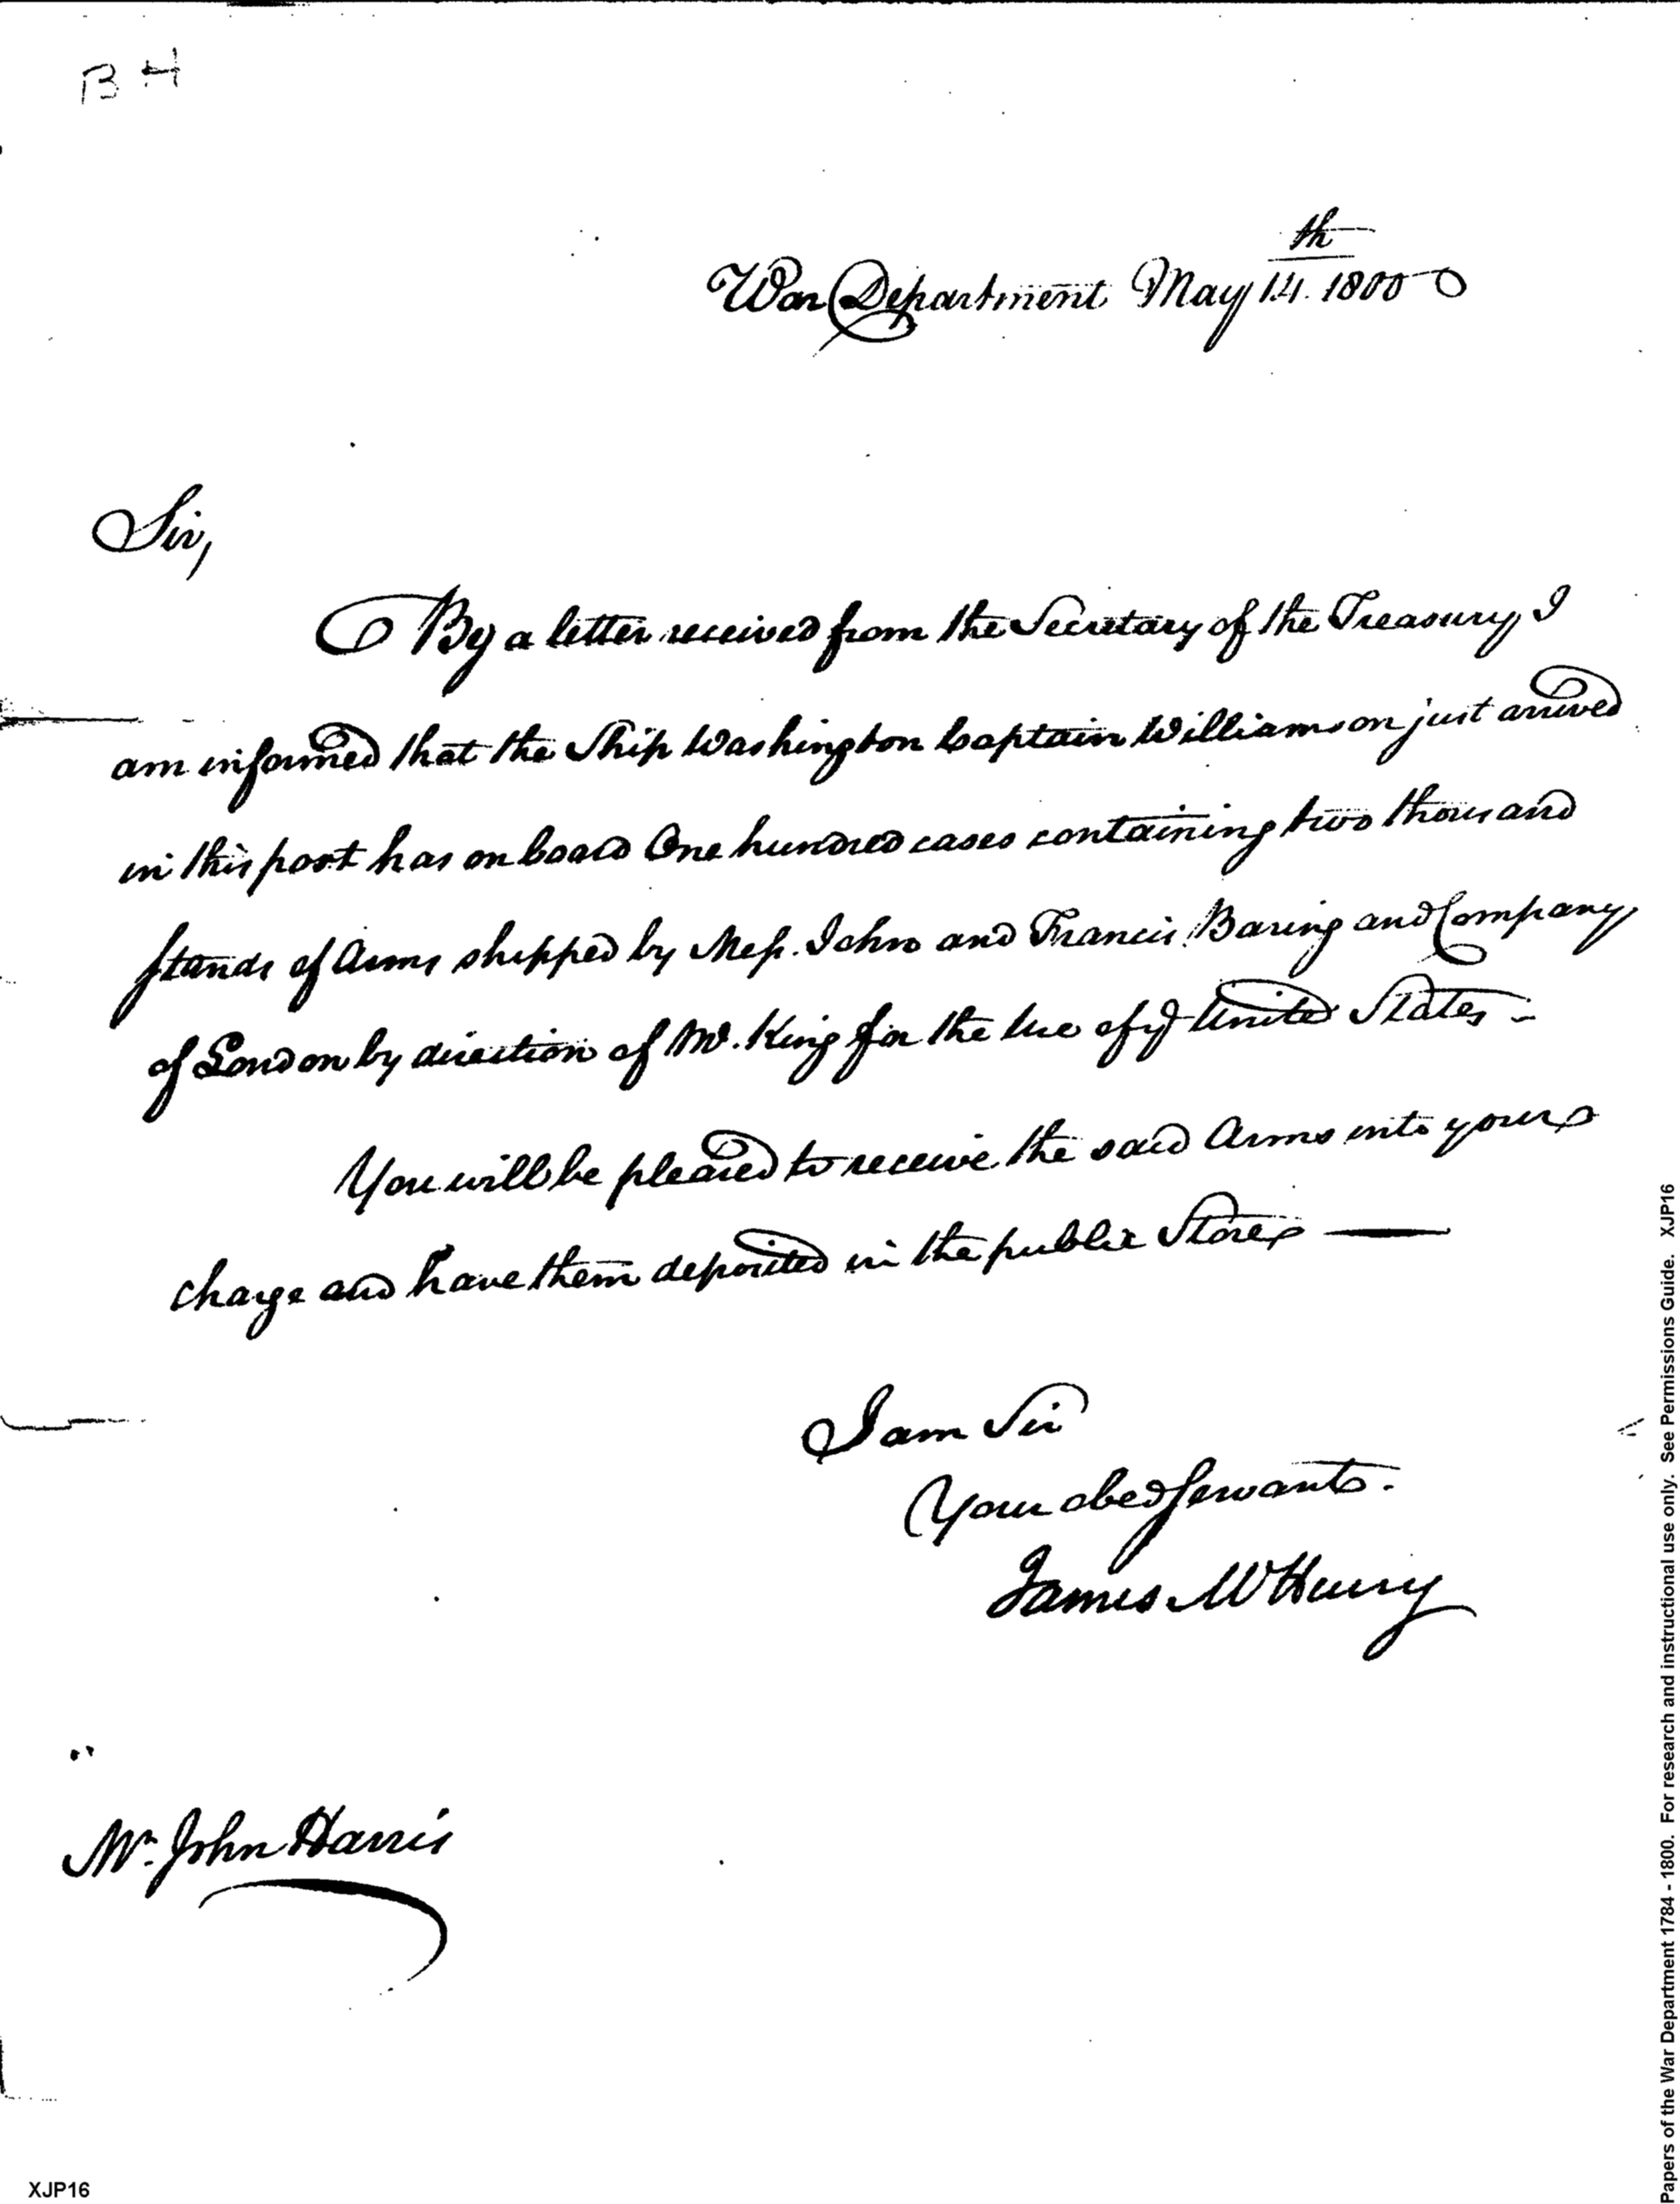 BH
War Department May 14th. 1800
Sir,
By a letter received from the Secretary of the Treasury, I
am informed that the Ship Washington Captain Williamson just arrived
in this port has on board One hundred cases containing two thousand
stands of Arms shipped by Mess. John and Francis Baring and Company,
of London by direction of Mr. King for the use of ye United States -
You will be pleased to receive the said Arms into your
charge and have them deposited in the public Stores —
I am Sir
Your obed Servant.
James McHenry
Mr. John Harris
XJP16
Papers of the War Department 1784 - 1800. For research and instructional use only. See Permissions Guide. XJP16